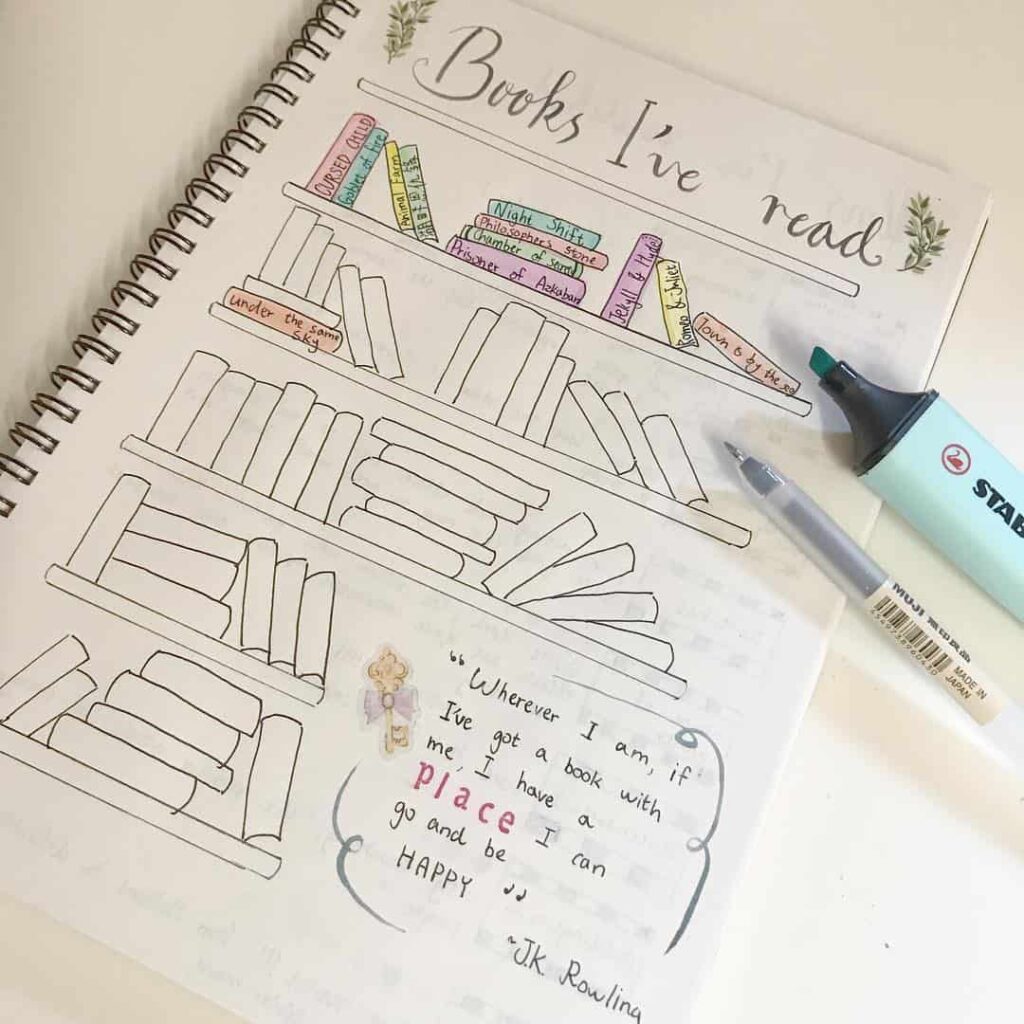 Books I've read
CURSED CHILD
Goblet of fire
Animal Farm
Night Shift
Philosopher's stone
Chamber of secret
Prisoner of Azkaban
Jekyll & Hyde
Romeo & Juliet
Town is by the sea
under the same
sky
"Wherever I am, if
I've got a book with
me, I have a
place I can
go and be
HAPPY"
~J.K. Rowling
STAB
MUJI 無印良品
4549738960430
MADE IN
JAPAN